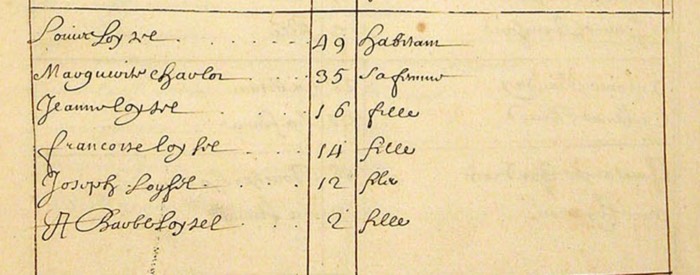 Louis Loysel 49 habitant
Marguerite Charlot 35 sa femme
Jeanne loysel 16 fille
francoise loysel 14 fille
Joseph Loysel 12 filz
Barbe Loysel 2 fille